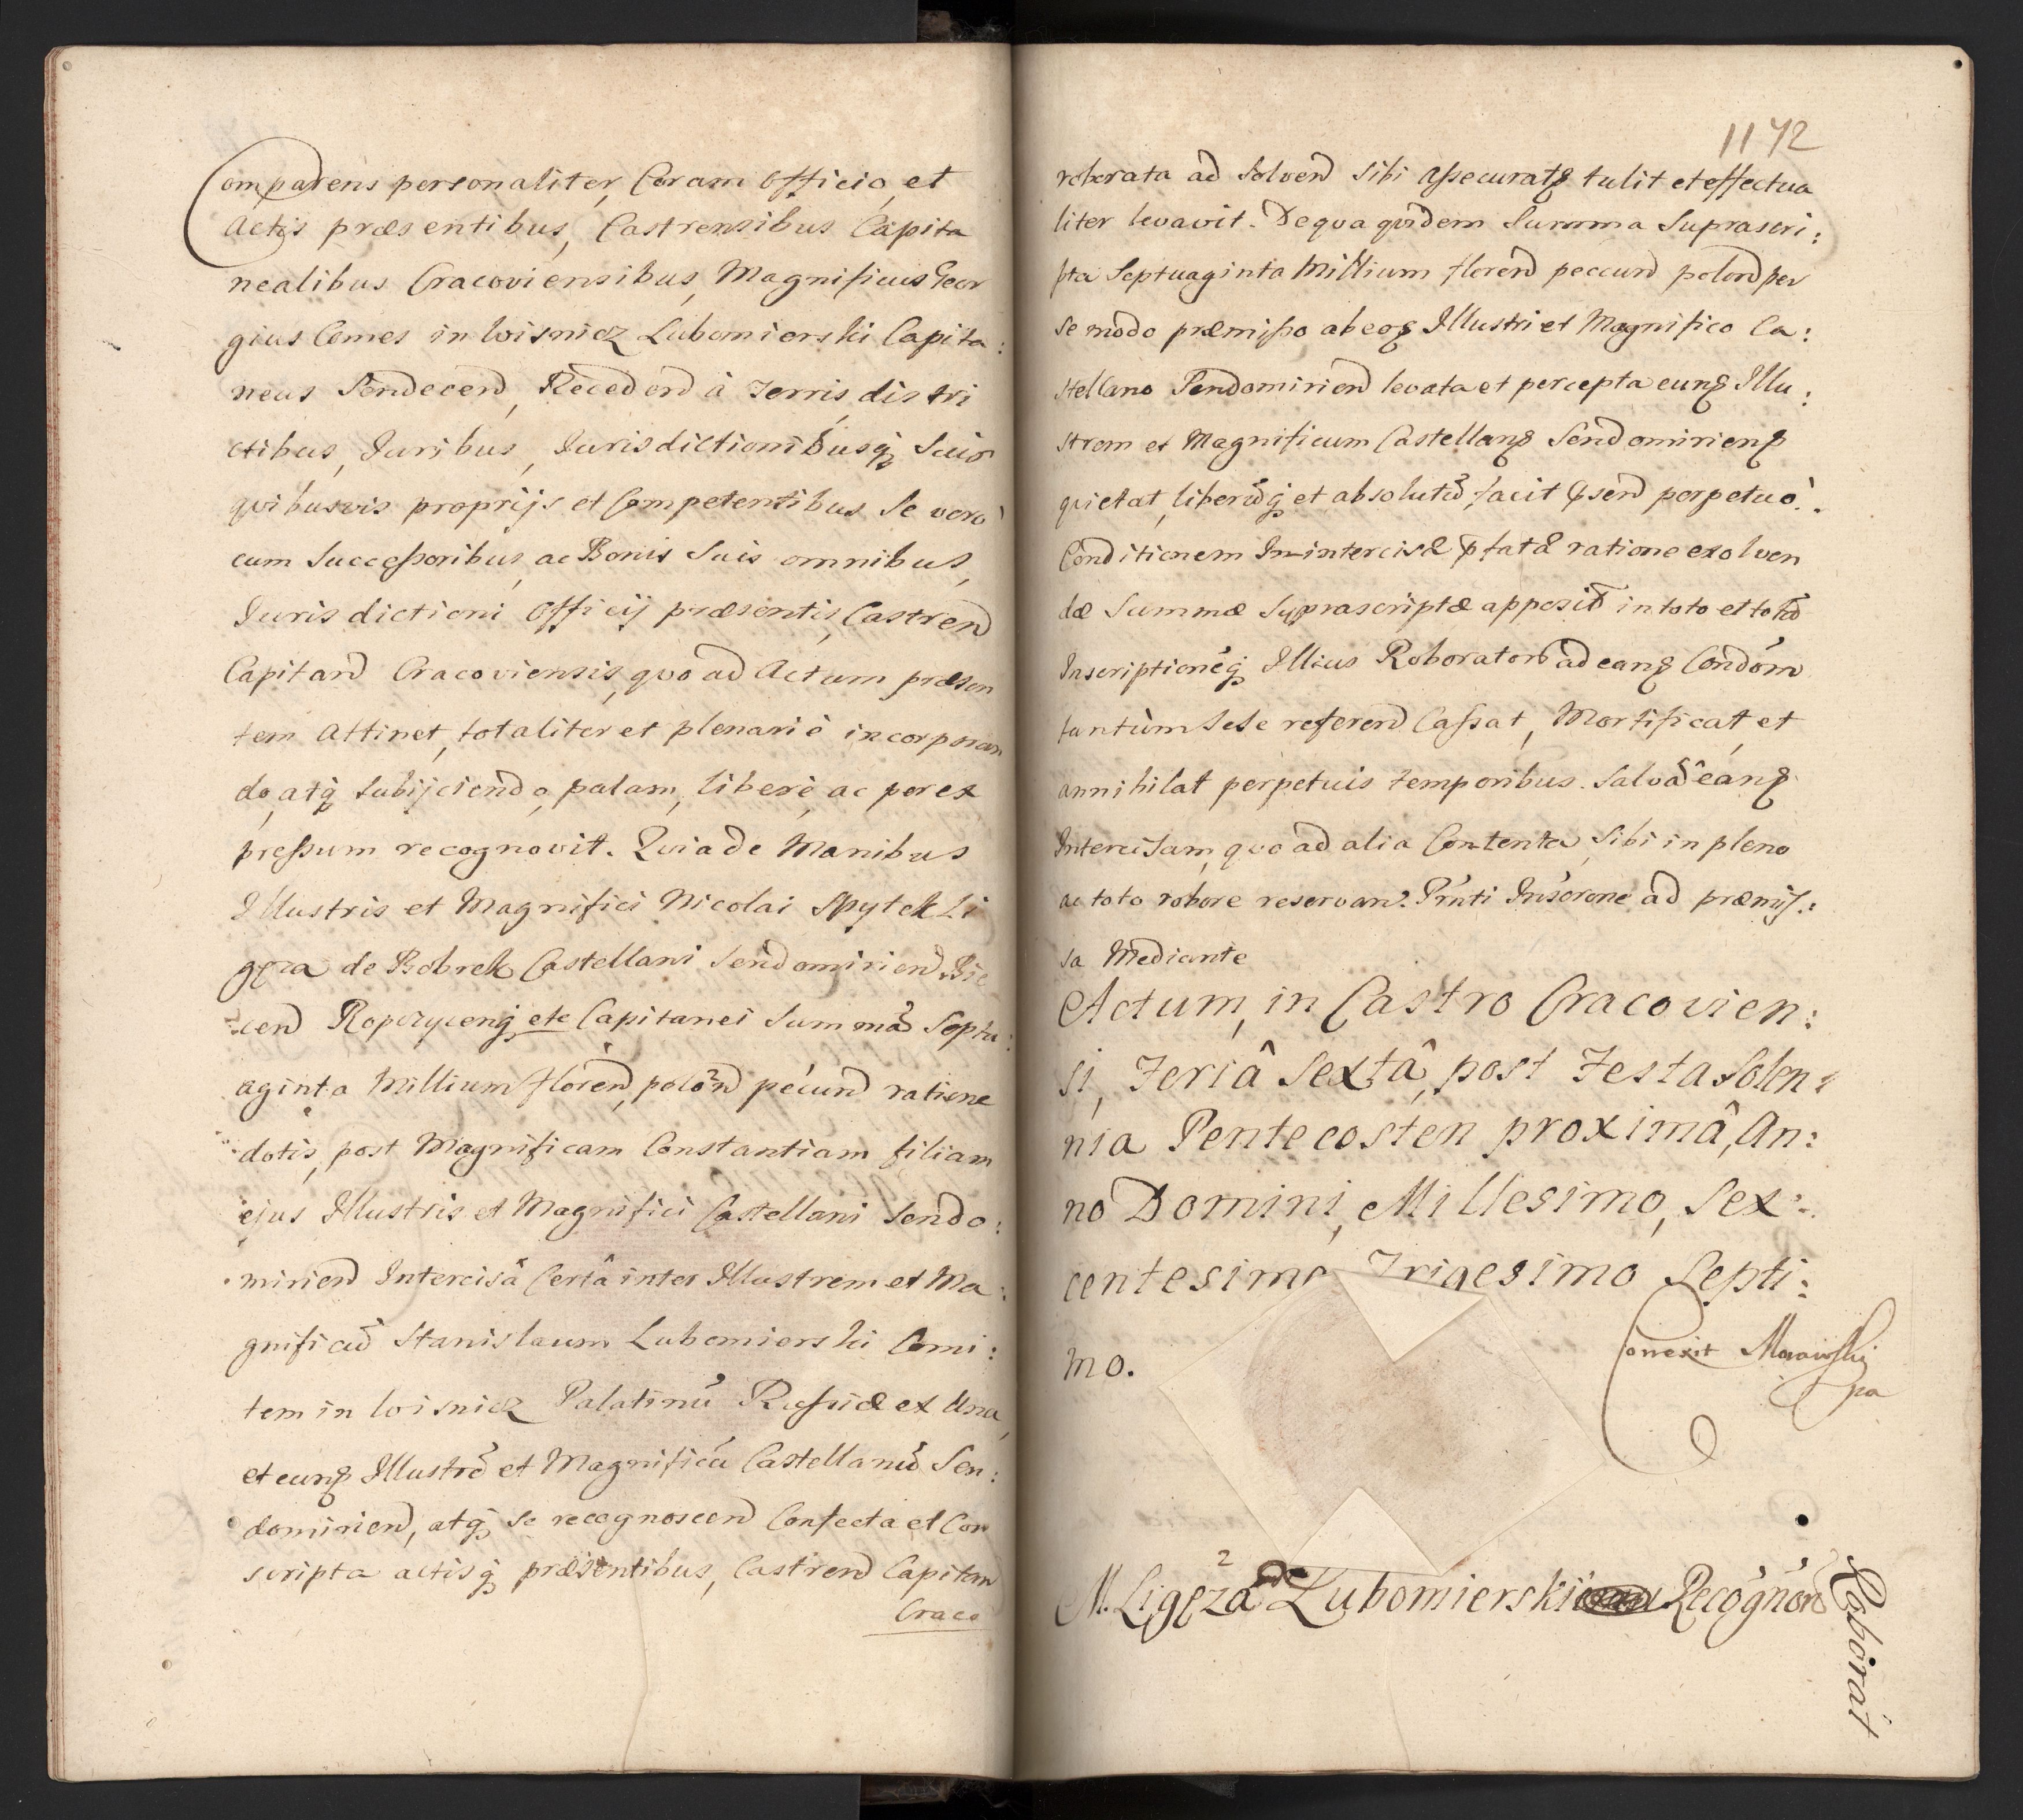 Comparens personaliter, Coram Officio, et
Actis præsentibus, Castrensibus Capita
nealibus Cracoviensibus, Magnificus Geor
gius Comes in Wisnicz Lubomierski Capita:
neus Sendecen, Recedend à Terris, distri
ctibus, Iuribus, Iurisdictionibusq Suis
quibusvis proprijs et Competentibus Se verò
cum Successoribus, ac Bonis Suis omnibus,
Iurisdictioni Officij præsentis, Castren
Capitan Cracoviensis, quo ad Actum præsen
tem Attinet, totaliter et plenariè incorporan
do, atq Subijciendo, palam, liberè, ac per ex
pressum recognovit. Quia de Manibus
Illustris et Magnifici Nicolai Spytek Li
gęza de Bobrek Castellani Sendomirien, Bie
cen Ropczycenq etc Capitanei Summã Septu:
aginta Millium floren, polon pecun ratione
dotis, post Magnificam Constantiam filiam
ejus Illustris et Magnifici Castellani Sendo:
mirien Intercisâ Certâ inter Illustrem et Ma:
gnificũ Stanislaum Lubomierski Comi:
tem in Wisnicz Palatinũ Russiæ ex Una,
et eund Illustrẽ et Magnificũ Castellanũ Sen:
domirien, atq se recognoscen Confecta et Con
scripta actisq præsentibus, Castren Capitan
Craco
1172
roborata ad Solvend Sibi Assecurat tulit et effectua
liter levavit. De qua quidem Summa Suprascri:
pta Septuaginta Millium floren peccun polon per
Se modo præmisso ab eod Illustri et Magnifico Ca:
stellano Sendomirien levata et percepta eund Illu:
strem et Magnificum Castellan Sendomirien
quietat, liberũq et absolutũ facit Pserd perpetuò.
Conditionem In intercisâ pfatâ ratione exolven
dæ Summæ Suprascriptæ apposit in toto et totũ
Inscriptionẽq Illius Roborator ad eand Condõm
tantùm Sese referen Cassat, Mortificat, et
annihilat perpetuis temporibus. Salvã eand
Intercisam, quo ad alia Contenta, Sibi in pleno
ac toto robore reservan. Prnti Insorone ad præmis:
sa Mediante
Actum, in Castro Cracovien:
si, Feriâ Sextâ, post Festa Solen:
nia Pentecosten proximâ, An:
no Domini, Millesimo, Sex:
centesimo Trigesimo Septi:
mo.
Correxit Morawski
pa
M. Ligęza 2 Lubomierski Recognon
Roborait